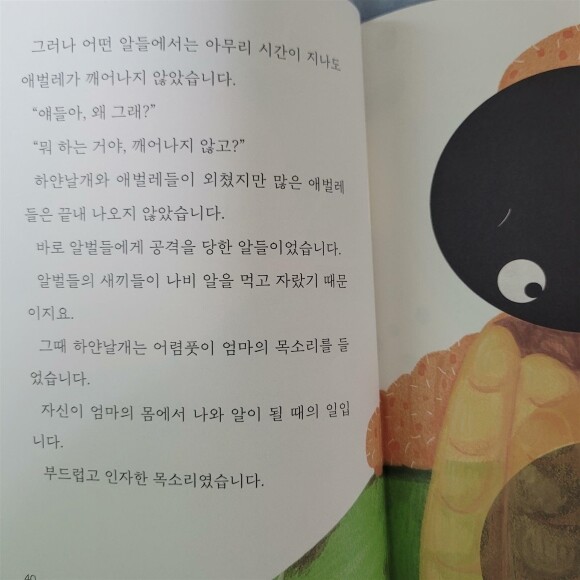 그러나 어떤 알들에서는 아무리 시간이 지나도
애벌레가 깨어나지 않았습니다.
“얘들아, 왜 그래?”
“뭐 하는 거야, 깨어나지 않고?”
하얀날개와 애벌레들이 외쳤지만 많은 애벌레
들은 끝내 나오지 않았습니다.
바로 알벌들에게 공격을 당한 알들이었습니다.
알벌들의 새끼들이 나비 알을 먹고 자랐기 때문
이지요.
그때 하얀날개는 어렴풋이 엄마의 목소리를 들
었습니다.
자신이 엄마의 몸에서 나와 알이 될 때의 일입
니다.
부드럽고 인자한 목소리였습니다.
40